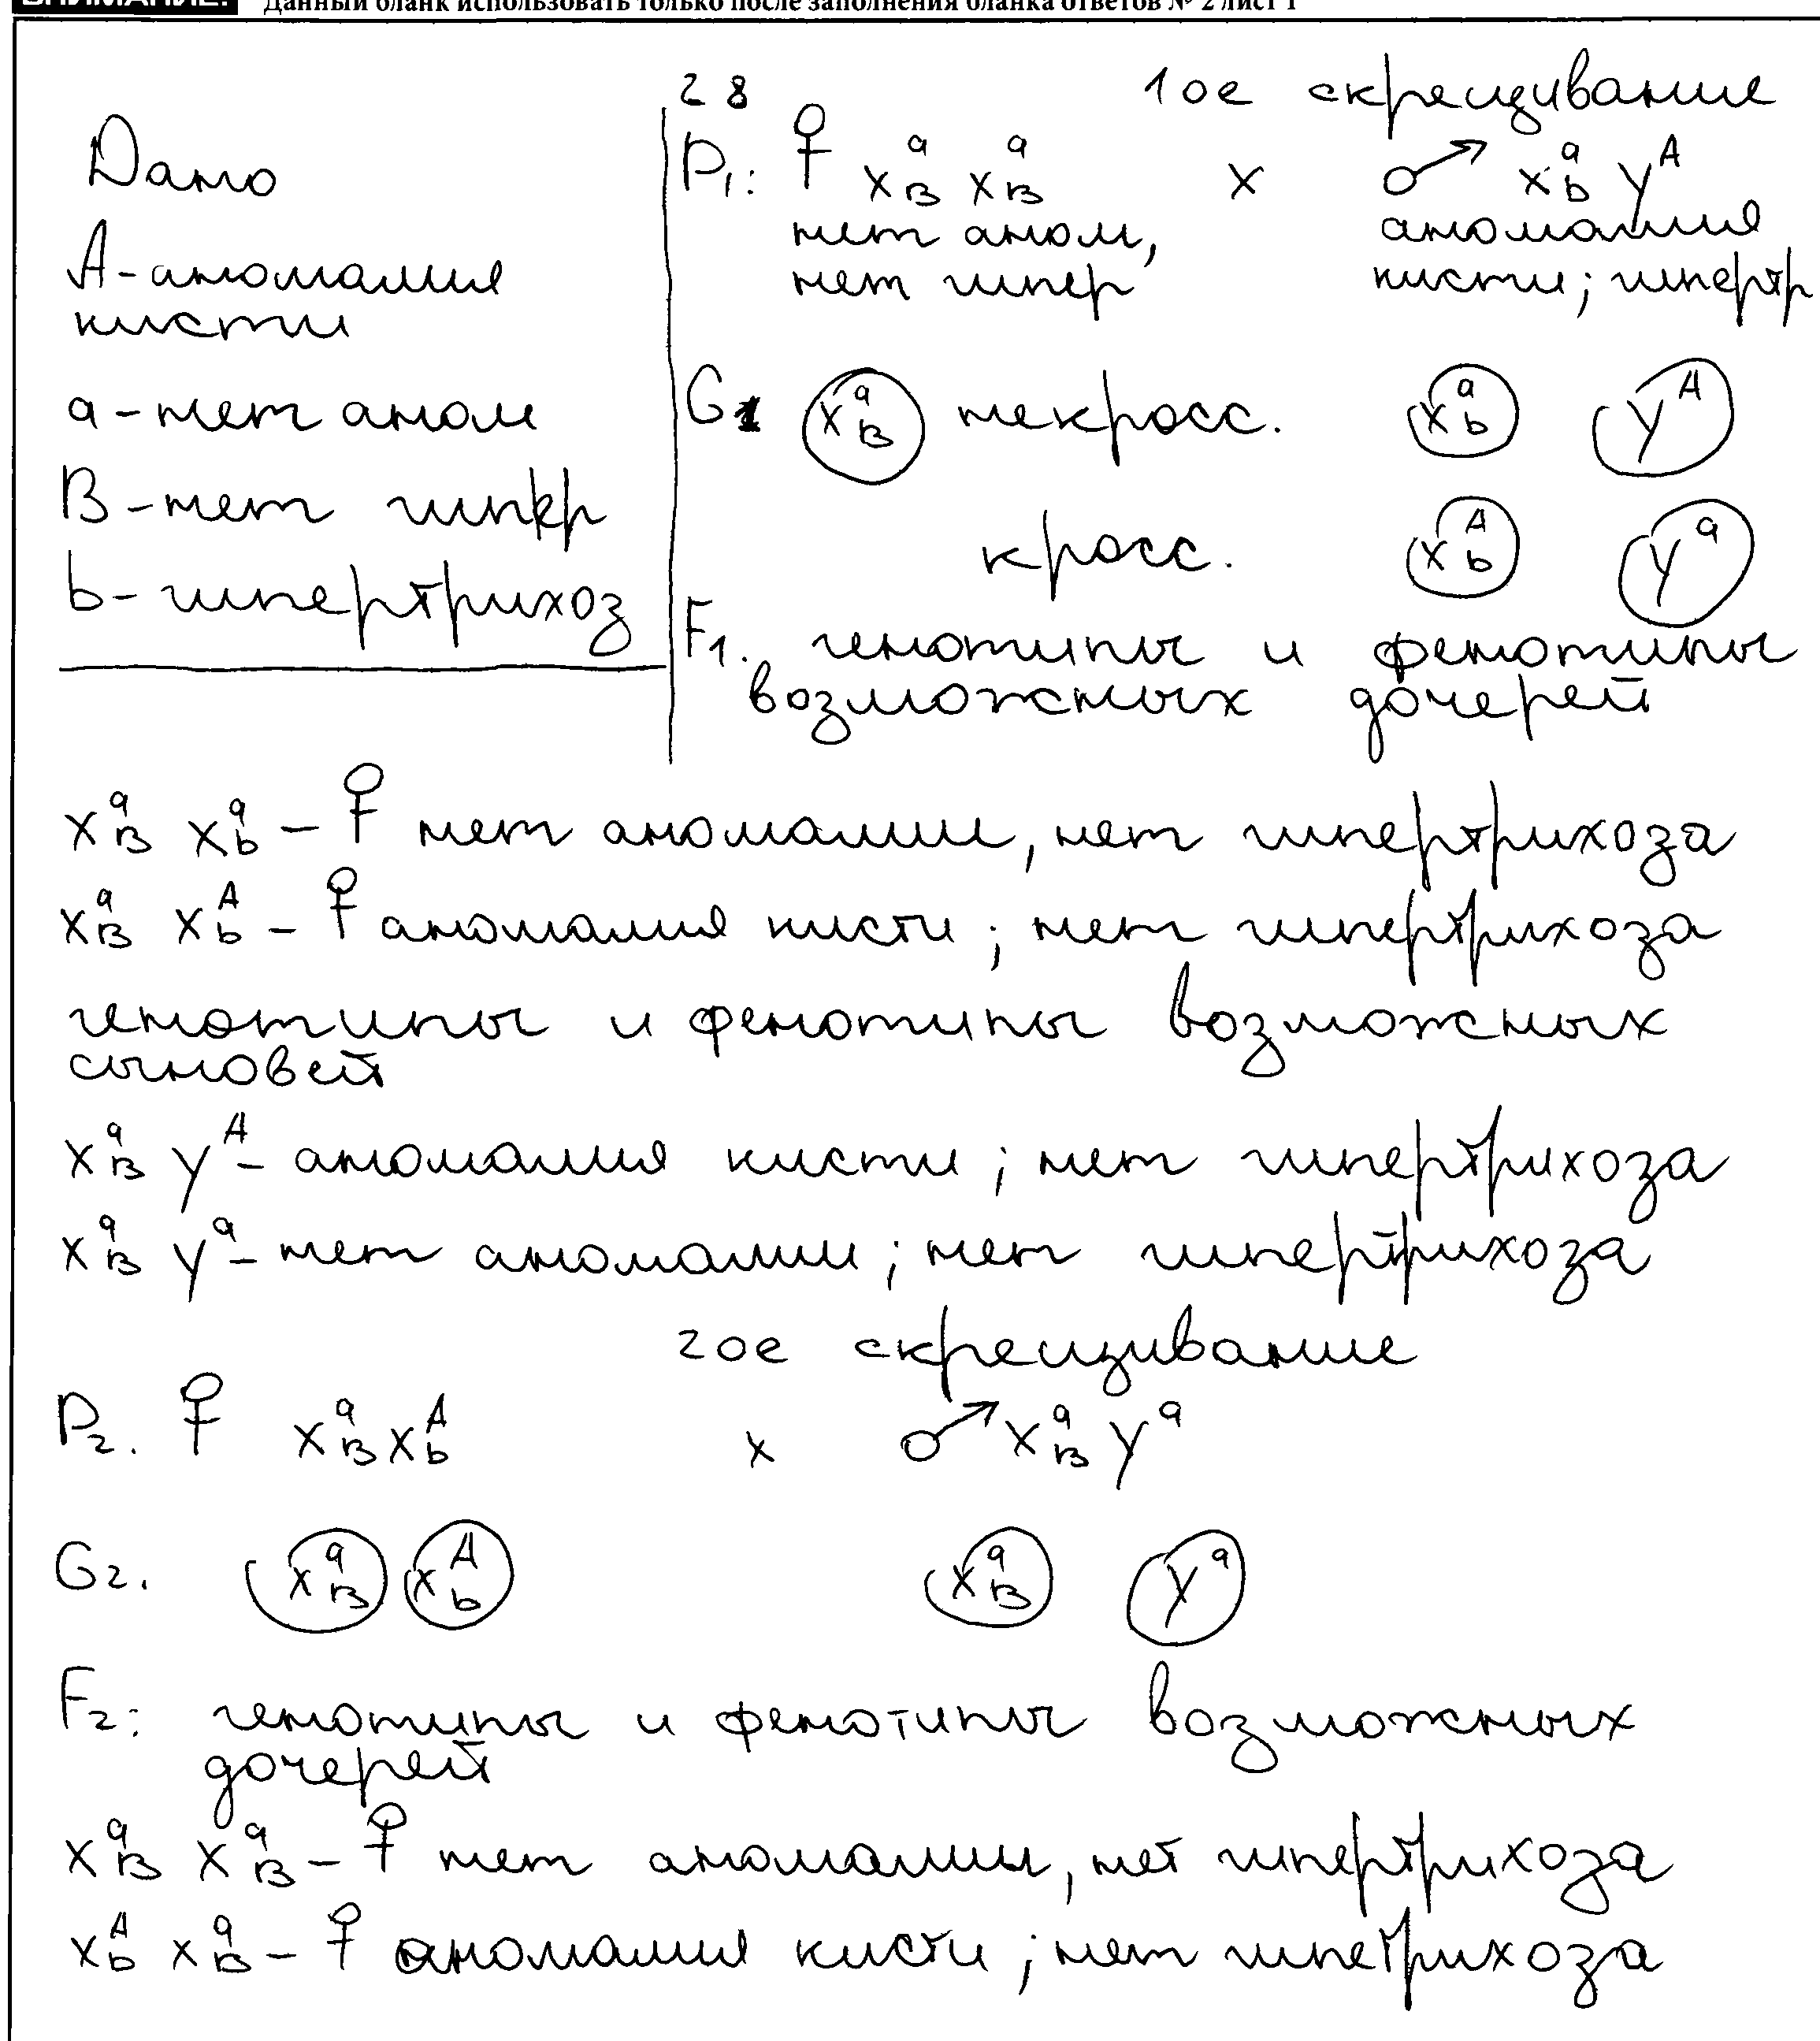 ВНИМАНИЕ! Данный бланк использовать только после заполнения бланка ответов № 2 лист 1
28 1ое скрещивание
Дано
P₁: ♀ XᵃB XᵃB x ♂ Xᵃb Yᴬ
нет аном, аномалия
нет гипер кисти; гипертр
A - аномалия
кисти
a - нет аном
B - нет гипер
b - гипертрихоз
G1 XᵃB некросс. Xᵃb Yᴬ
кросс. Xᴬb Yᵃ
F1. генотипы и фенотипы
возможных дочерей
XᵃB Xᵃb - ♀ нет аномалии, нет гипертрихоза
XᵃB Xᴬb - ♀ аномалия кисти; нет гипертрихоза
генотипы и фенотипы возможных
сыновей
XᵃB Yᴬ - аномалия кисти; нет гипертрихоза
XᵃB Yᵃ - нет аномалии; нет гипертрихоза
2ое скрещивание
P₂. ♀ XᵃB Xᴬb x ♂ XᵃB Yᵃ
G₂. XᵃB Xᴬb XᵃB Yᵃ
F₂: генотипы и фенотипы возможных
дочерей
XᵃB XᵃB - ♀ нет аномалии, нет гипертрихоза
Xᴬb XᵃB - ♀ аномалия кисти; нет гипетрихоза